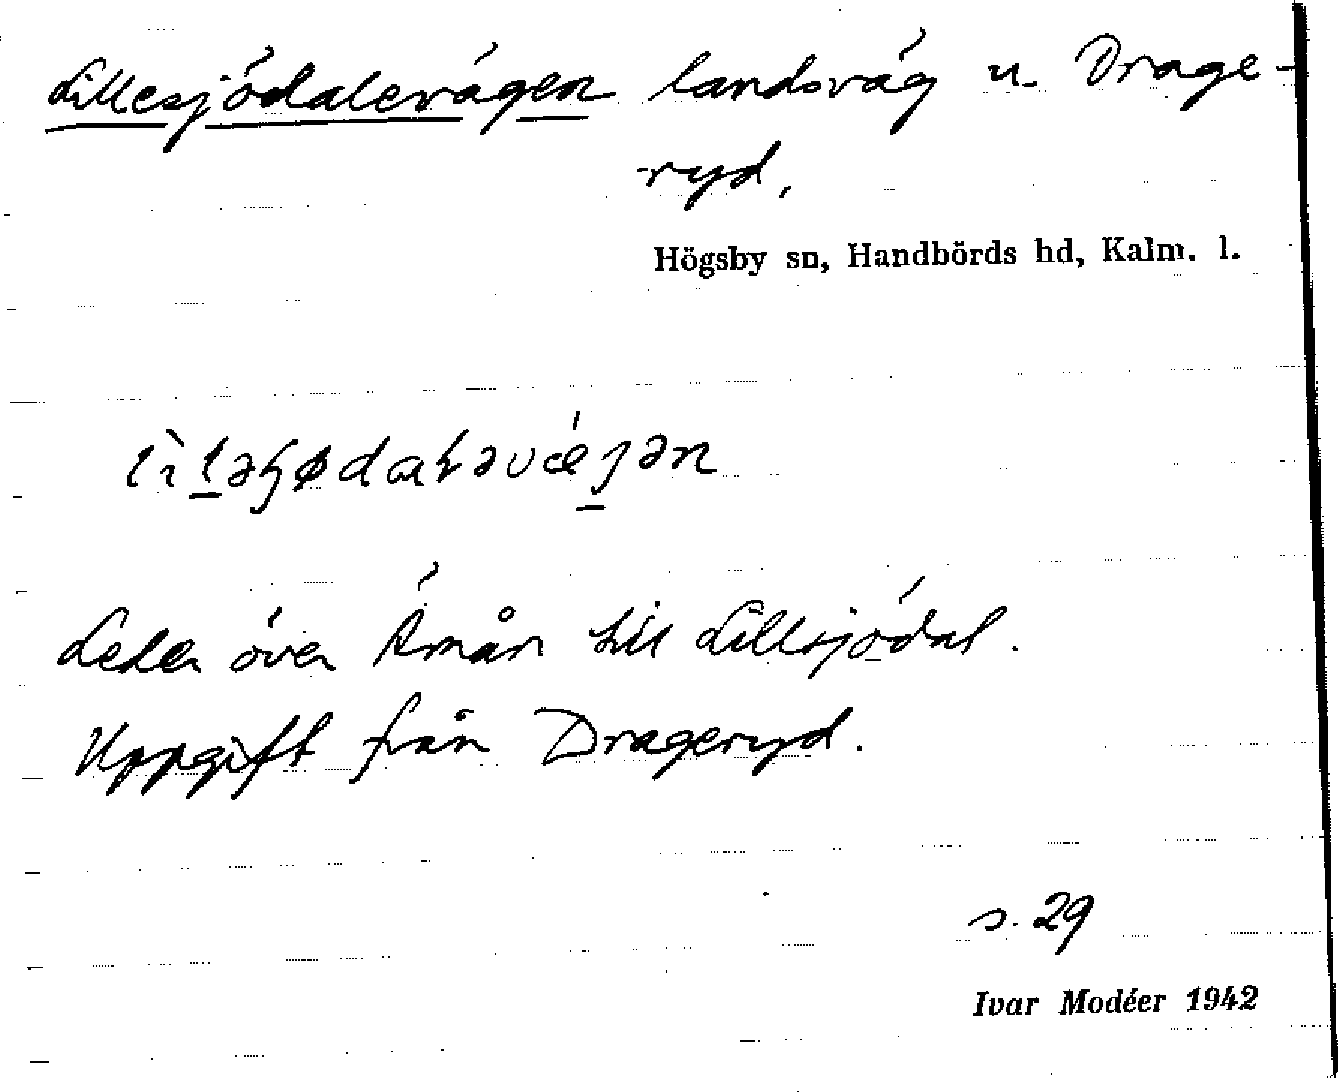 Lillesjödalevägen landsväg u. Drage-
ryd.
Högsby sn, Handbörds hd, Kalm. l.
Leder över Ämån till Lillsjödal.
Uppgift från Drageryd.
s. 29
Ivar Modéer 1942